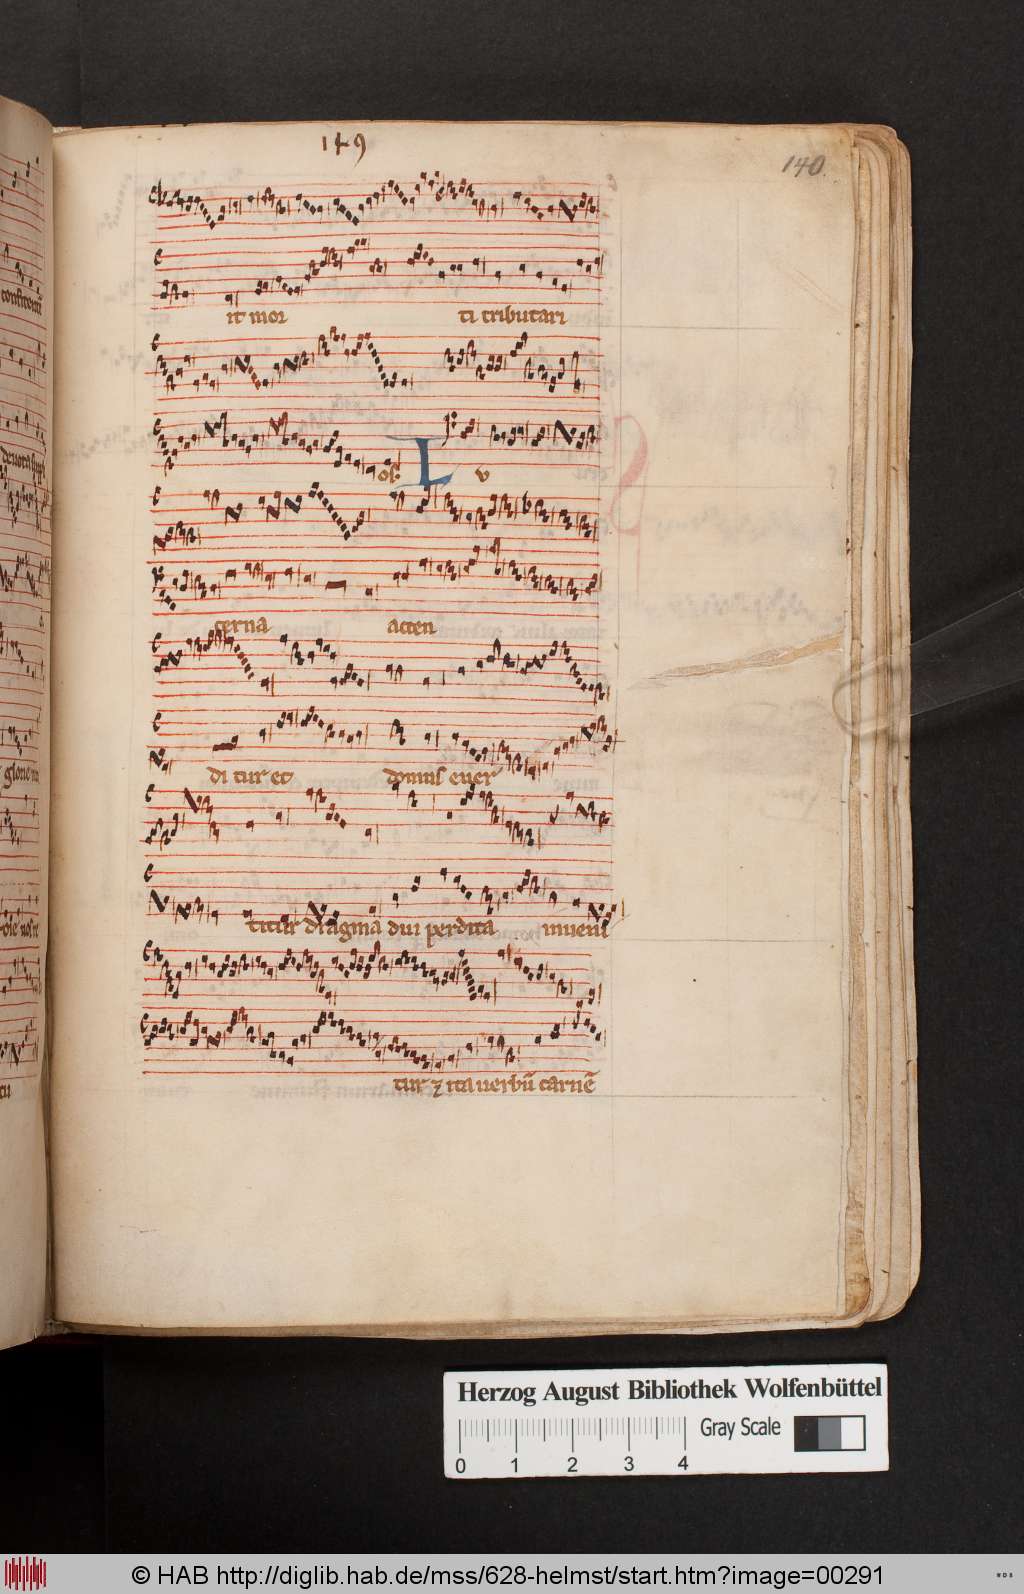 149
140
confitenti
it mor ti tributari
os. L v
devota
cerna accen
ditur et domus ever
glorie
titur dragma dui perdita inveni
tur ⁊ ita verbū carnē
Herzog August Bibliothek Wolfenbüttel
Gray Scale
0 1 2 3 4
© HAB http://diglib.hab.de/mss/628-helmst/start.htm?image=00291